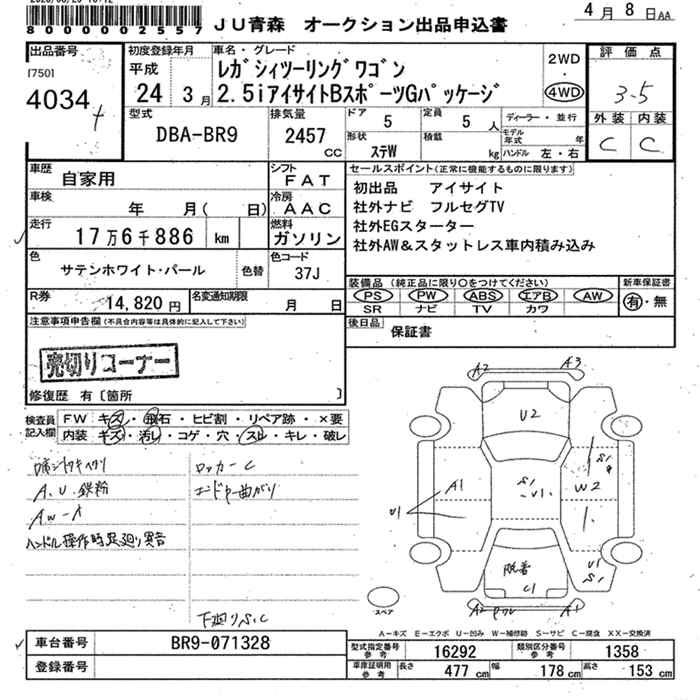 800000002557
JU青森 オークション出品申込書
4月8日AA
出品番号
[750]
4034
初度登録年月
平成
24 3月
車名・グレード
レガシィツーリングワゴン
2.5iアイサイトBスポーツGパッケージ
2WD
・
4WD
評価点
3.5
外装 内装
C C
型式
DBA-BR9
排気量
2457
cc
ドア 5
定員 5人
ディーラー・並行
形状
ステW
積載 kg
モデル年式 年
ハンドル 左・右
車歴
自家用
シフト
FAT
車検
年 月( 日)
冷房
AAC
走行
17万6千886 km
燃料
ガソリン
色
サテンホワイト・パール
色替
色コード
37J
R券
14,820円
名変通知期限
月 日
セールスポイント(正常に機能するものに限ります)
初出品 アイサイト
社外ナビ フルセグTV
社外EGスターター
社外AW&スタットレス車内積み込み
装備品 (純正品に限り○をつけてください)
PS PW ABS エアB AW
SR ナビ TV カワ
新車保証書
有・無
後日品
保証書
注意事項申告欄(不具合内容等は具体的に記入して下さい)
売切りコーナー
修復歴 有〔箇所 〕
検査員記入欄
FW キズ・飛石・ヒビ割・リペア跡・×要
内装 キズ・汚レ・コゲ・穴・スレ・キレ・破レ
A.U.鉄粉
AW-A
ハンドル操作時異音
ロッカーC
下廻りS.C
A2 A3
U2
A1
U1
S1
U1
W2
S1
脱着
C1
U1
S1
A2 A1
スペア
A-キズ E-エクボ U-凹み W-補修跡 S-サビ C-腐食 XX-交換済
車台番号
BR9-071328
登録番号
型式指定番号参考
16292
類別区分番号参考
1358
車庫証明用参考
長さ 477 cm
幅 178 cm
高さ 153 cm